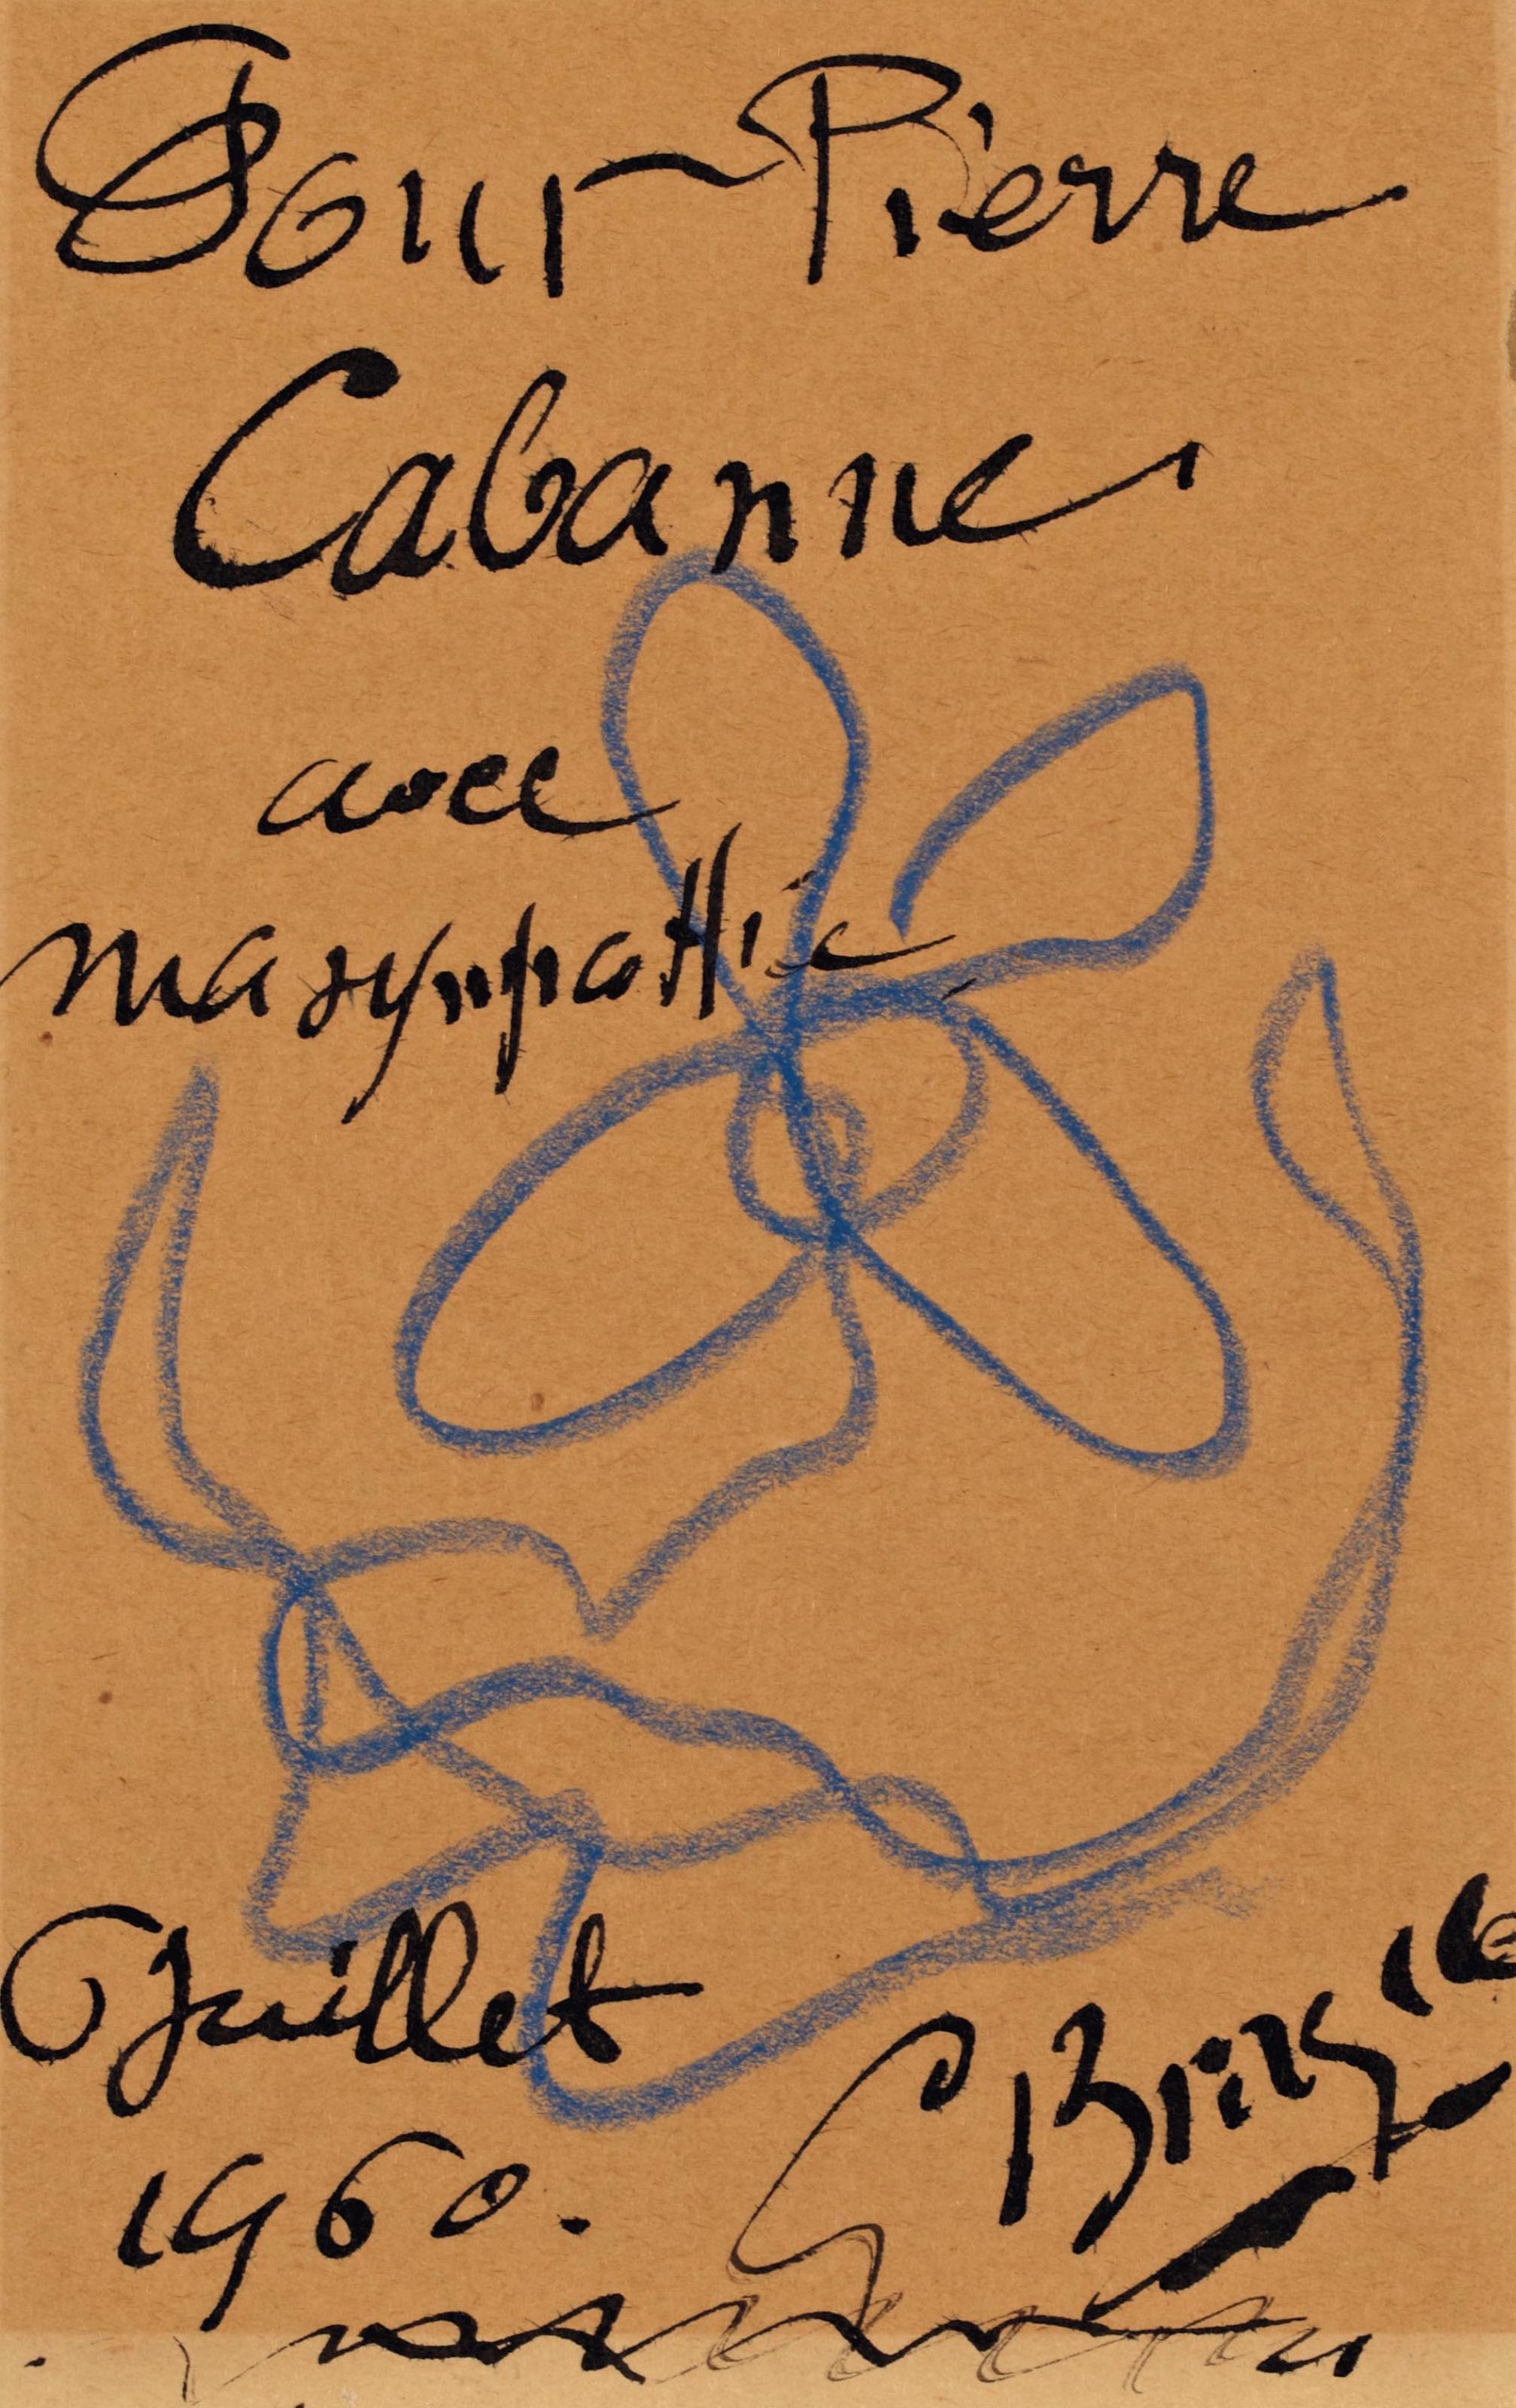 Pour Pierre
Cabanne
avec
ma sympathie
Juillet
1960.